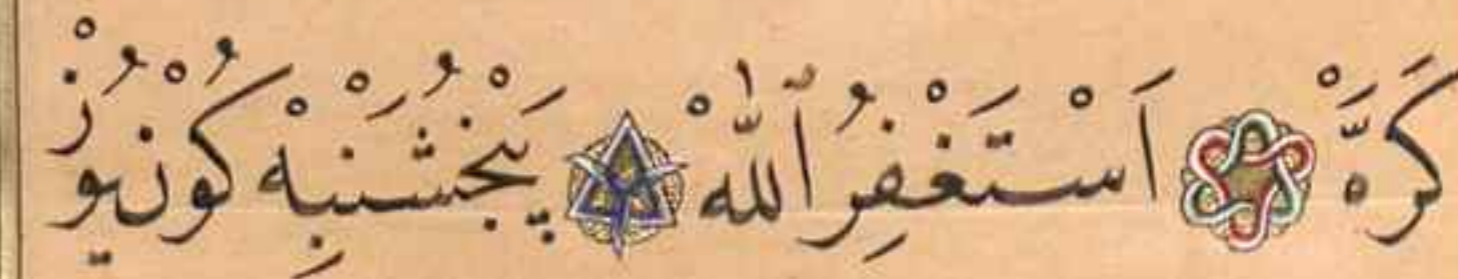 كَرَّهْ اَسْتَغْفِرُ ٱللّٰهْ پَنْجُشَنْبِهْ كُونْ يُوزْ